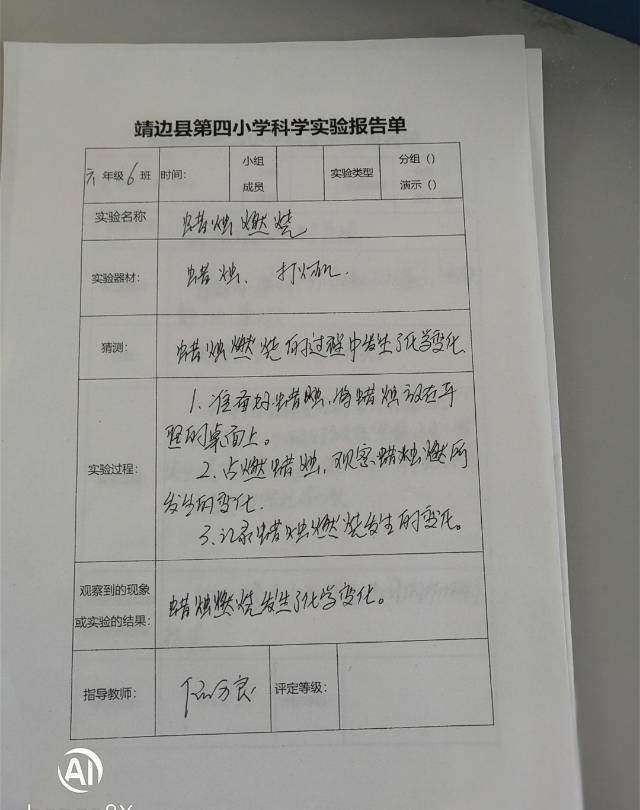 靖边县第四小学科学实验报告单
六年级6班 时间: 小组成员 实验类型 分组() 演示()
实验名称 蜡烛燃烧
实验器材: 蜡烛、打火机.
猜测: 蜡烛燃烧的过程中发生了化学变化
实验过程: 1.准备好蜡烛,将蜡烛放在平
整的桌面上。
2.点燃蜡烛,观察蜡烛燃所
发生的变化.
3.记录蜡烛燃烧发生的变化。
观察到的现象
或实验的结果: 蜡烛燃烧发生了化学变化。
指导教师: 评定等级:
AI